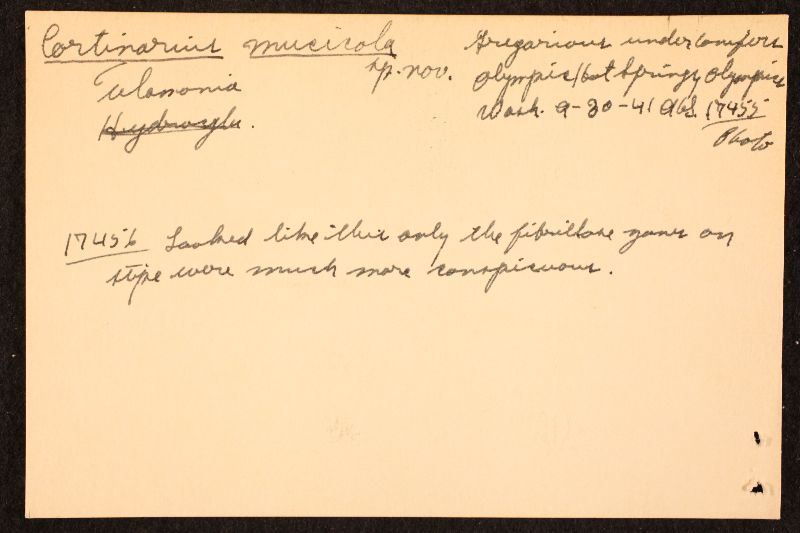 Cortinarius mucicola
sp. nov.
Telamonia
Hydrocybe.
Gregarious under conifers
Olympic Hot Springs, Olympics
Wash. 9-30-41 AHS. 17455
Photo
17456 Looked like this only the fibrillose zones on
stipe were much more conspicuous.